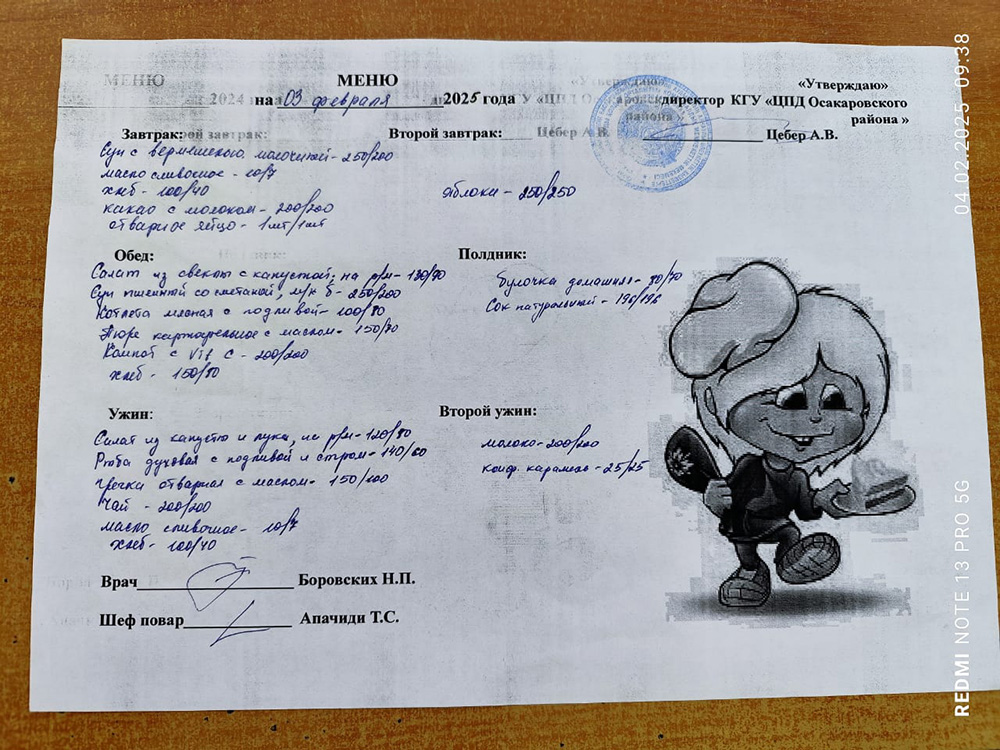 МЕНЮ
«Утверждаю»
на 03 февраля 2025 года
директор КГУ «ЦПД Осакаровского
района»
Цебер А.В.
Завтрак:
Суп с вермишелью молочный - 250/200
масло сливочное - 10/7
хлеб - 100/40
какао с молоком - 200/200
отварное яйцо - 1шт/1шт
Второй завтрак:
Яблоки - 250/250
Обед:
Салат из свеклы с капустой, на р/м - 130/90
Суп пшенный со сметаной, м/к б - 250/200
Котлета мясная с подливой - 100/80
Пюре картофельное с маслом - 150/80
Компот с Vit C - 200/200
хлеб - 150/80
Полдник:
Булочка домашняя - 80/70
Сок натуральный - 196/196
Ужин:
Салат из капусты и лука, на р/м - 120/80
Рыба духовая с подливой и - 140/60
Гречка отварная с маслом - 150/100
Чай - 200/200
масло сливочное - 10/7
хлеб - 100/40
Второй ужин:
молоко - 200/200
конф. карамель - 25/25
Врач Боровских Н.П.
Шеф повар Апачиди Т.С.
04.02.2025 09:38
REDMI NOTE 13 PRO 5G